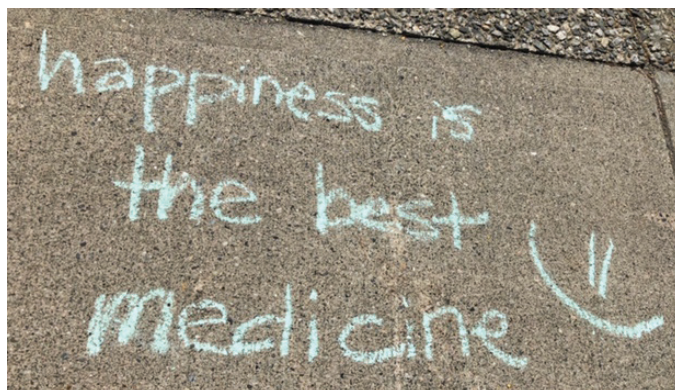 happiness is
the best
medicine